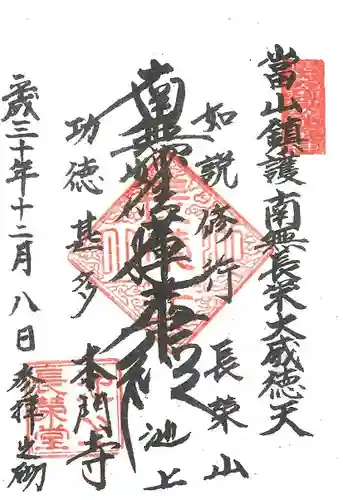 當山鎮護 南無長栄大威徳天
如説修行 長栄山
南無妙法蓮華経
池上
功徳甚多 本門寺
長榮堂
平成三十年十二月八日 参拝之砌